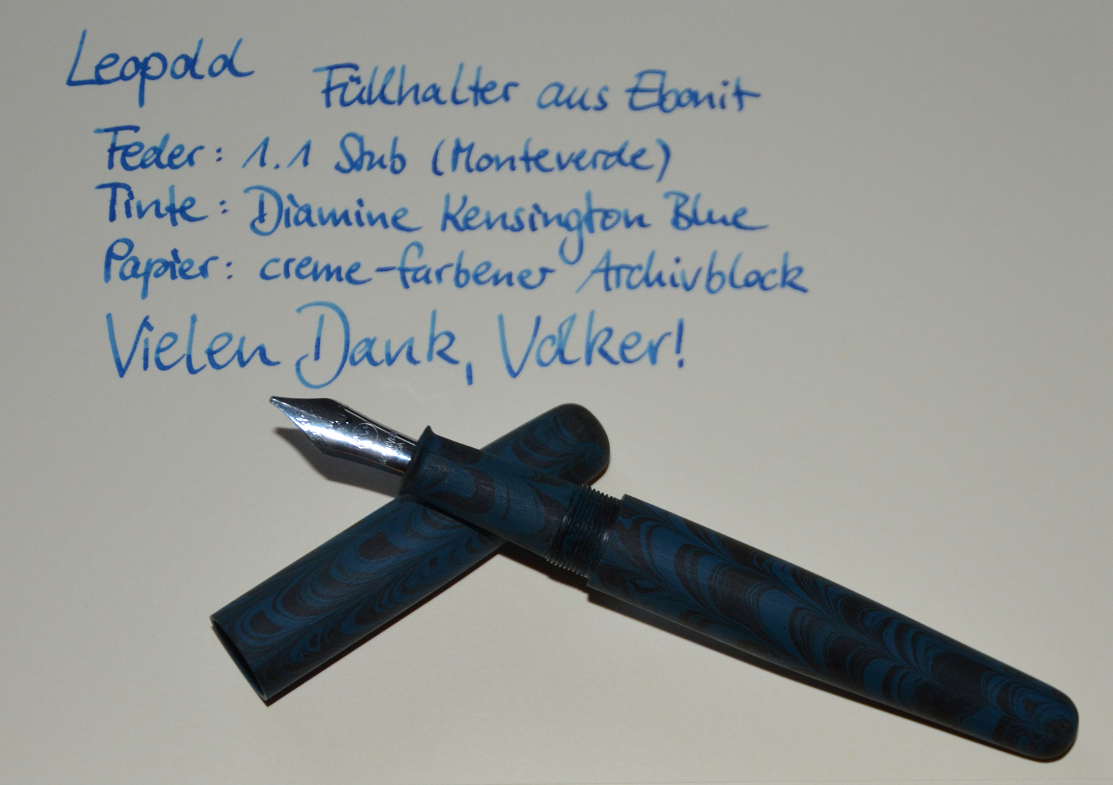 Leopold
Füllhalter aus Ebonit
Feder: 1.1 Stub (Monteverde)
Tinte: Diamine Kensington Blue
Papier: creme-farbener Archivblock
Vielen Dank, Volker!